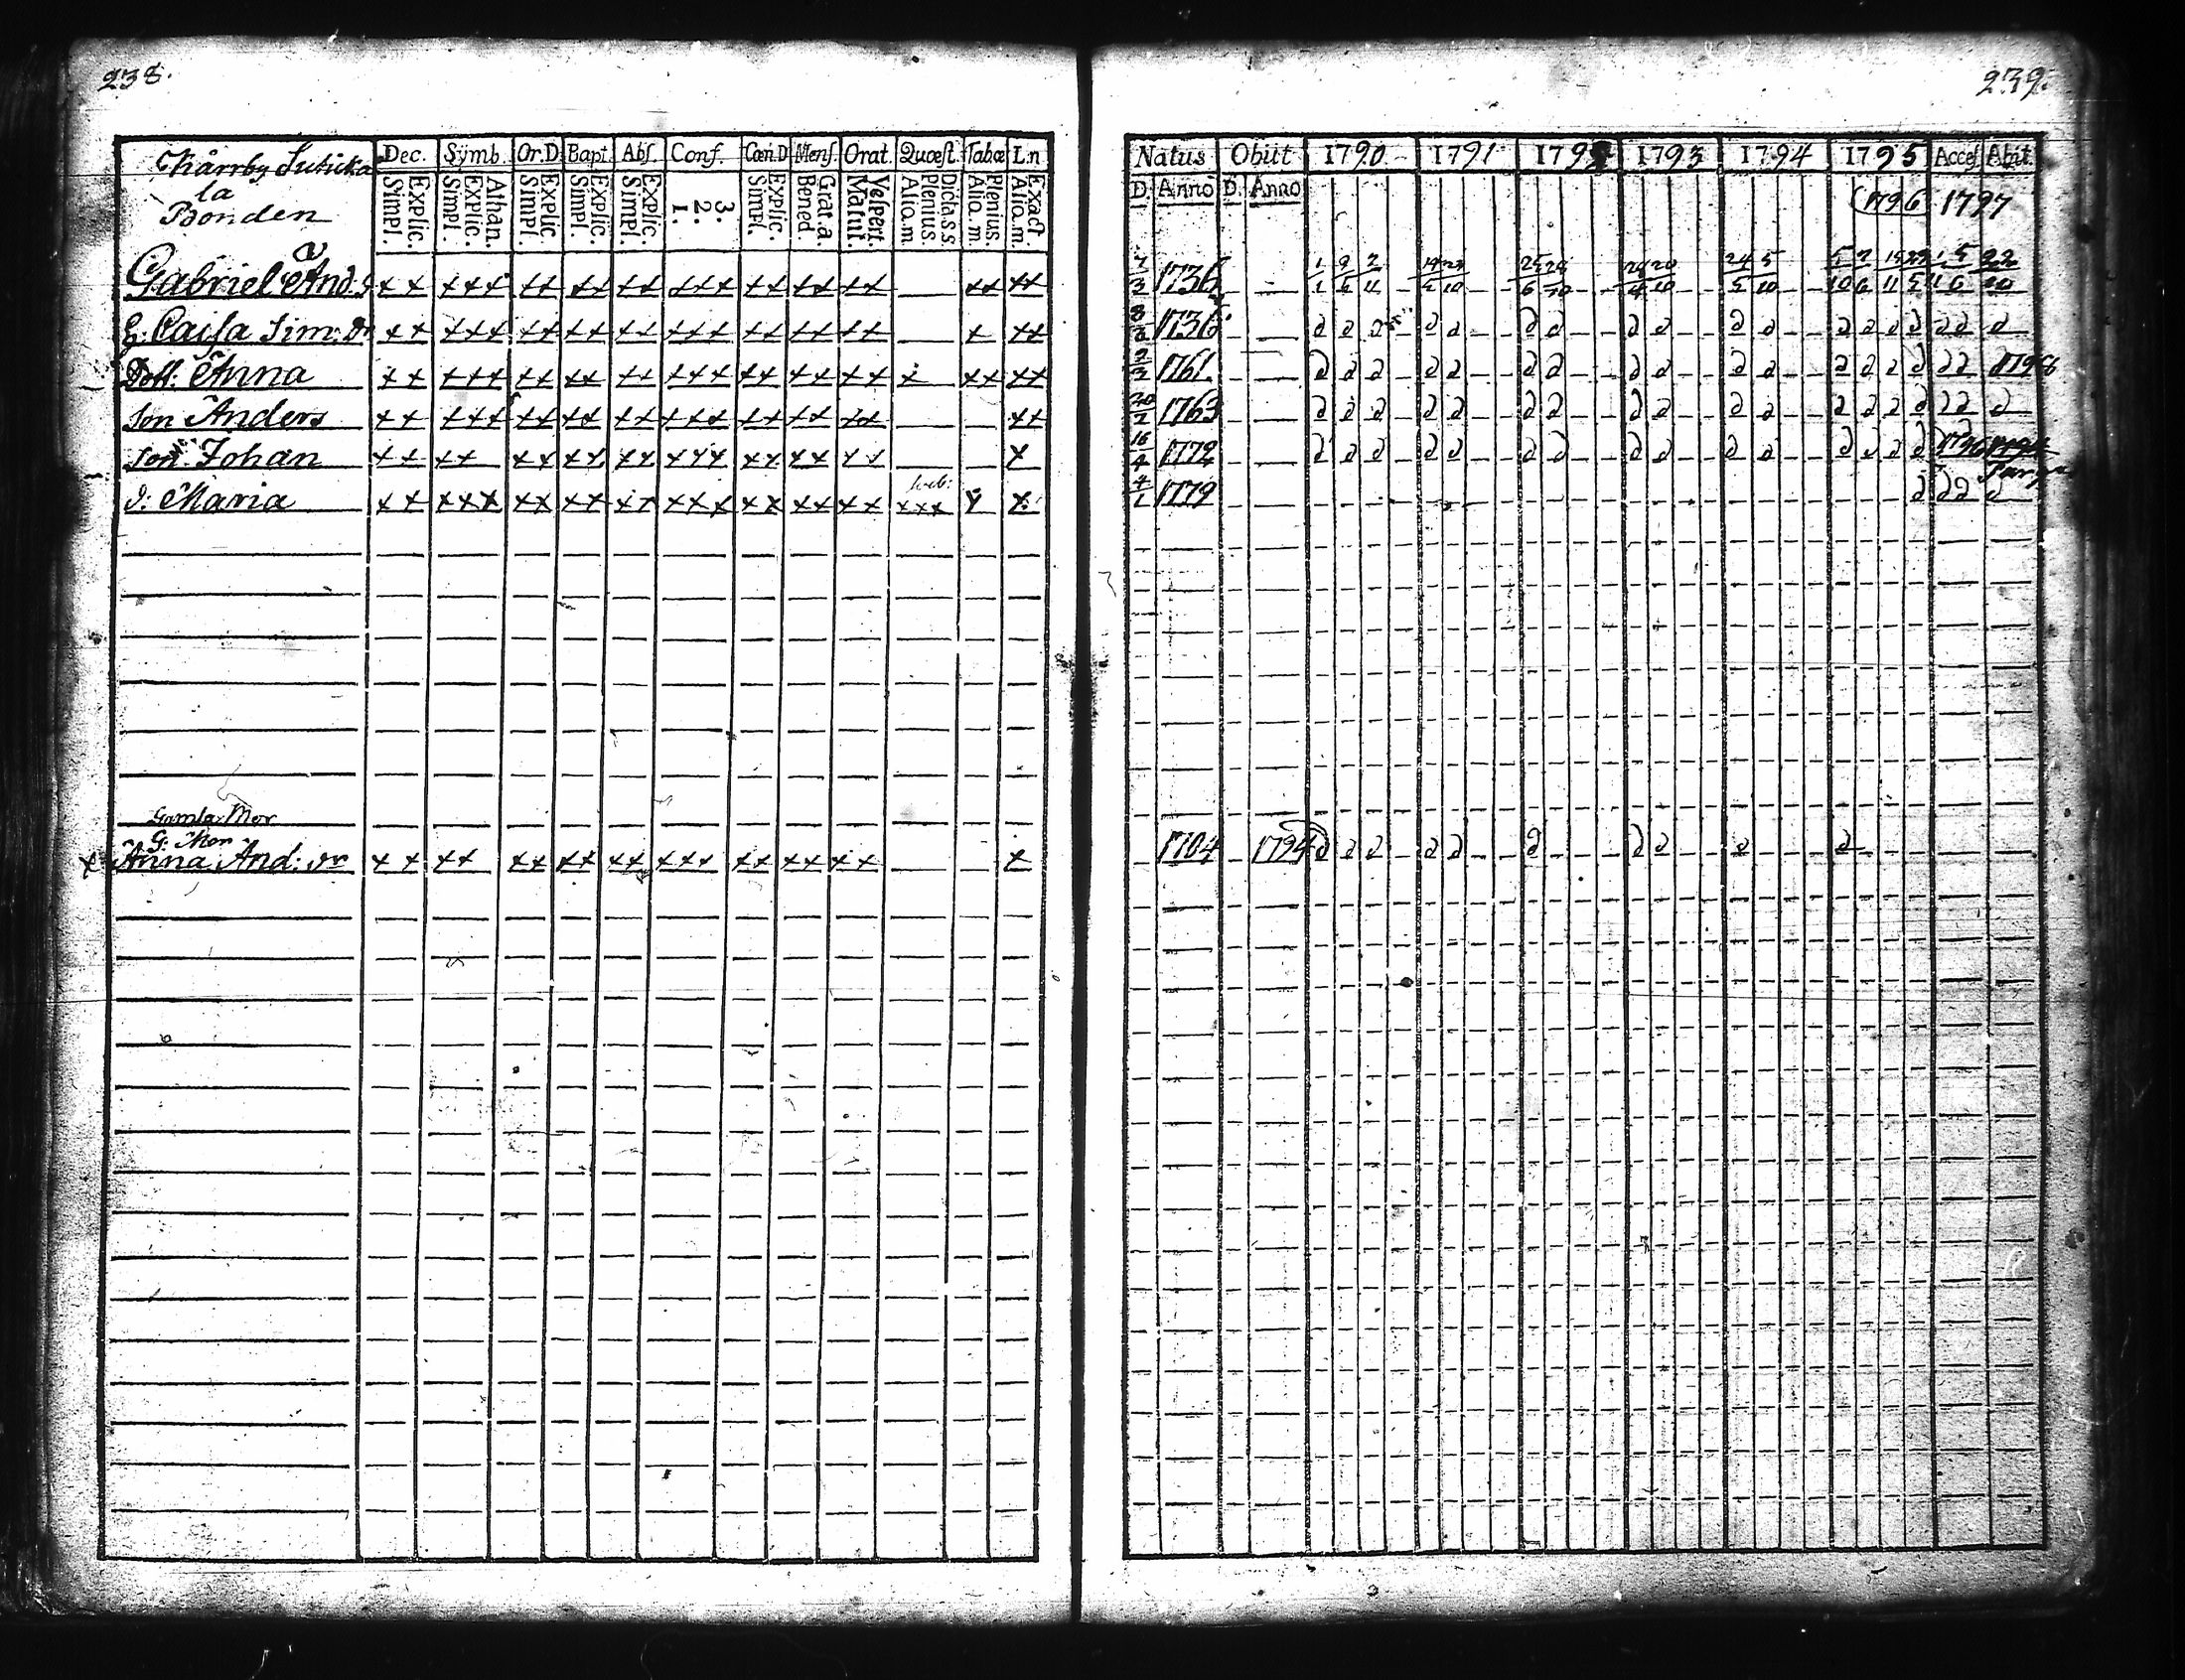 238.
Kårrby Sutika
la
Bonden
Dec. Symb. Or.D. Bapt. Abs. Conf. Cœn.D. Mens. Orat. Quæst. Tabæ Ln
Simpl. Explic. Simpl. Explic. Athan. Simpl. Explic. Simpl. Explic. Simpl. Explic. 1. 2. 3. Simpl. Explic. Bened. Grat.a. Matut. Vespert. Alio.m. Plenius. Dicta s s Alio.m. Plenius. Alio.m. Exact.
Gabriel And: s xx xxx xx xx xx xxx xx xx xx xx xx
h: Caisa Sim: dr xx xxx xx xx xx xxx xx xx xx x xx
Dott: Anna xx xxx xx xx xx xxx xx xx xx x xx xx
Son Anders xx xxx xx xx xx xxx xx xx xx xx
Son Johan xx xx xx xx xx xxx xx xx xx x
d: Maria xx xxx xx xx xx xxx xx xx xx xxx x x
Gamla Mor
G: Mor
x Anna And: dr xx xx xx xx xx xxx xx xx xx x
239.
Natus Obiit 1790 1791 1792 1793 1794 1795 Acces. Abit.
D. Anno D. Anno (1796 1797
7/3 1736 1/1 9/6 2/11 24/5 5/10
8/2 1736 d d d d d d d d d d d d d d d d d d
2/3 1761 d d d d d d d d d d d d d d d d d d 1798
20/2 1763 d d d d d d d d d d d d d d d d d d
16/4 1772 d d d d d d d d d d d d d d d 1796
4/1 1779 d d d d
1704 1794 d d d d d d d d d d